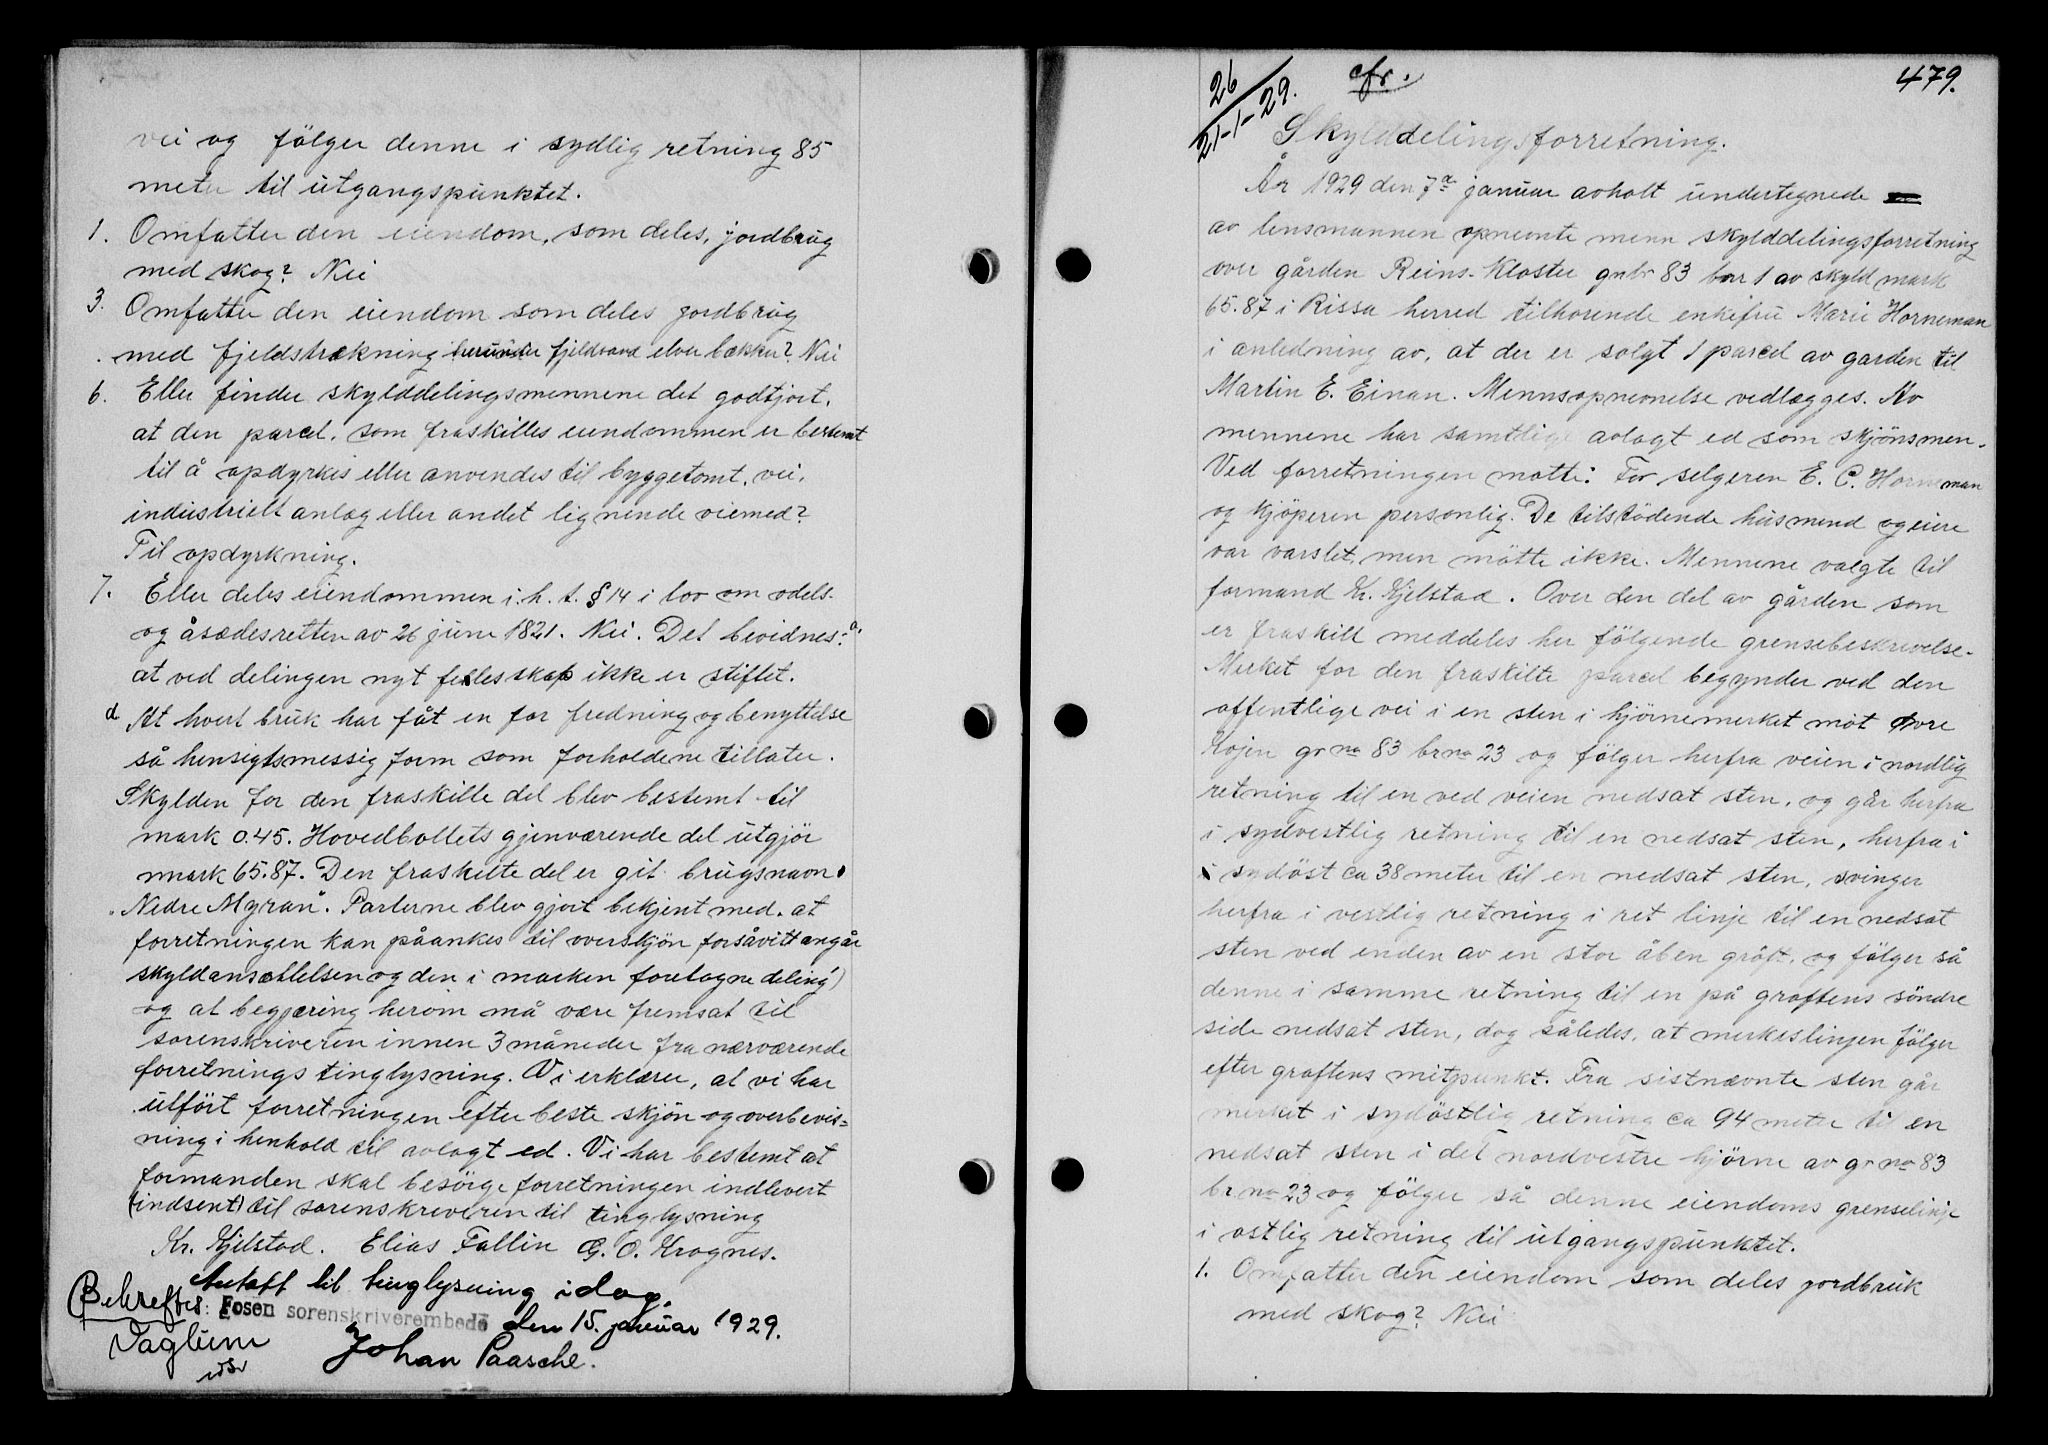 vei og følger denne i sydlig retning 85
meter til utgangspunktet.
1. Omfatter den eiendom, som deles, jordbrug
med skog? Nei
3. Omfatter den eiendom som deles jordbrug
med fjeldstrækning herunder fjeldvand elver bækker? Nei
6. Eller finder skylddelingsmennene det godtjort,
at den parcel, som fraskilles eiendommen er bestemt
til å opdyrkes eller anvendes til byggetomt, vei,
industrielt anlæg eller andet lignende øiemed?
Til opdyrkning.
7. Eller deles eiendommen i. h. t. § 14 i lov om odels-
og åsædesretten av 26 juni 1821. Nei. Det bevidnes: a.
at ved delingen nyt fellesskap ikke er stiftet.
d At hvert bruk har fåt en for fredning og benyttelse
så hensigtsmessig form som forholdene tillater.
Skylden for den fraskilte del blev bestemt til
mark 0.45. Hovedbøllets gjenværende del utgjør
mark 65.87. Den fraskilte del er git brugsnavn
"Nedre Myran". Parterne blev gjort bekjent med, at
forretningen kan påankes til overskjøn forsåvitt angår
skyldansættelsen og den i marken foretagne deling)
og at begjæring herom må være fremsat til
sorenskriveren innen 3 måneder fra nærværende
forretnings tinglysning. Vi erklærer, at vi har
utført forretningen efter beste skjøn og overbevis=
ning i henhold til avlagt ed. Vi har bestemt at
formanden skal besørge forretningen indlevert
(indsent) til sorenskriveren til tinglysning
Kr. Kjelstad. Elias Fallin G. O. Krognes.
Mottatt til tinglysning idag.
Bekreftes: Fosen sorenskriverembede den 15. januar 1929.
Vaglum Johan Paasche.
26/21-1-29. cfr. 479.
Skylddelingsforretning.
År 1929 den 7de januar avholt undertegnede
av lensmannen opnevnte menn skylddelingsforretning
over gården Reins-Kloster gnr 83 bnr 1 av skyld mark
65.87 i Rissa herred tilhørende enkefru Marie Horneman
i anledning av, at der er solgt 1 parcel av garden til
Martin E. Einan. Mennsopnevnelse vedlægges. Av
mennene har samtlige avlagt ed som skjønsmen.
Ved forretningen møtte: For selgeren E. C. Horneman
og kjøperen personlig. De tilstødende husmend og eiere
var varslet, men møtte ikke. Mennene valgte til
formand Kr. Kjelstad. Over den del av gården som
er fraskilt meddeles her følgende grensebeskrivelse.
Merket for den fraskilte parcel begynder ved den
offentlige vei i en sten i hjørnemerket mot Øvre
Kojen gr no 83 br no 23 og følger herfra veien i nordlig
retning til en ved veien nedsat sten, og går herfra
i sydvestlig retning til en nedsat sten, herfra i
i sydøst ca 38 meter til en nedsat sten, svinger
herfra i vestlig retning i ret linje til en nedsat
sten ved enden av en stor åben grøft, og følger så
denne i samme retning til en på grøftens søndre
side nedsat sten, dog således, at merkeslinjen følger
efter grøftens mitpunkt. Fra sistnævnte sten går
merket i sydøstlig retning ca 94 meter til en
nedsat sten i det nordvestre hjørne av gr no 83
br. no 23 og følger så denne eiendoms grenselinje
i østlig retning til utgangspunktet.
1. Omfatter den eiendom som deles jordbruk
med skog? Nei